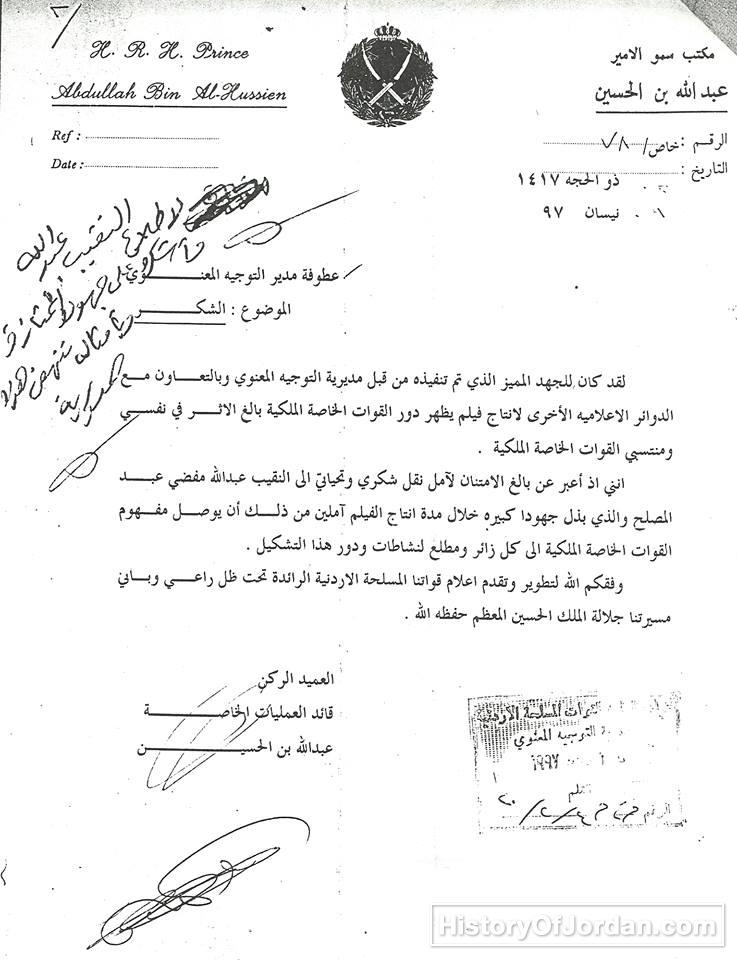 H. R. H. Prince
Abdullah Bin Al-Hussien
Ref :
Date :
مكتب سمو الامير
عبدالله بن الحسين
الرقم : خاص/
التاريخ :
ذو الحجه ١٤١٧
نيسان ٩٧
النقيب عبدالله
عطوفة مدير التوجيه المعنـــوي
الموضوع : الشكـــر
لقد كان للجهد المميز الذي تم تنفيذه من قبل مديرية التوجيه المعنوي وبالتعاون مع
الدوائر الاعلاميه الأخرى لانتاج فيلم يظهر دور القوات الخاصة الملكية بالغ الاثر في نفسي
ومنتسبي القوات الخاصة الملكية .
انني اذ أعبر عن بالغ الامتنان لآمل نقل شكري وتحياتي الى النقيب عبدالله مفضي عبد
المصلح والذي بذل جهودا كبيره خلال مدة انتاج الفيلم آملين من ذلك أن يوصل مفهوم
القوات الخاصة الملكية الى كل زائر ومطلع لنشاطات ودور هذا التشكيل .
وفقكم الله لتطوير وتقدم اعلام قواتنا المسلحة الاردنية الرائدة تحت ظل راعي وباني
مسيرتنا جلالة الملك الحسين المعظم حفظه الله .
العميد الركن
قائد العمليات الخاصـــة
عبدالله بن الحسيـــن
القوات المسلحة الأردنية
التوجيه المعنوي
١٩٩٧
الرقم
HistoryOfJordan.com